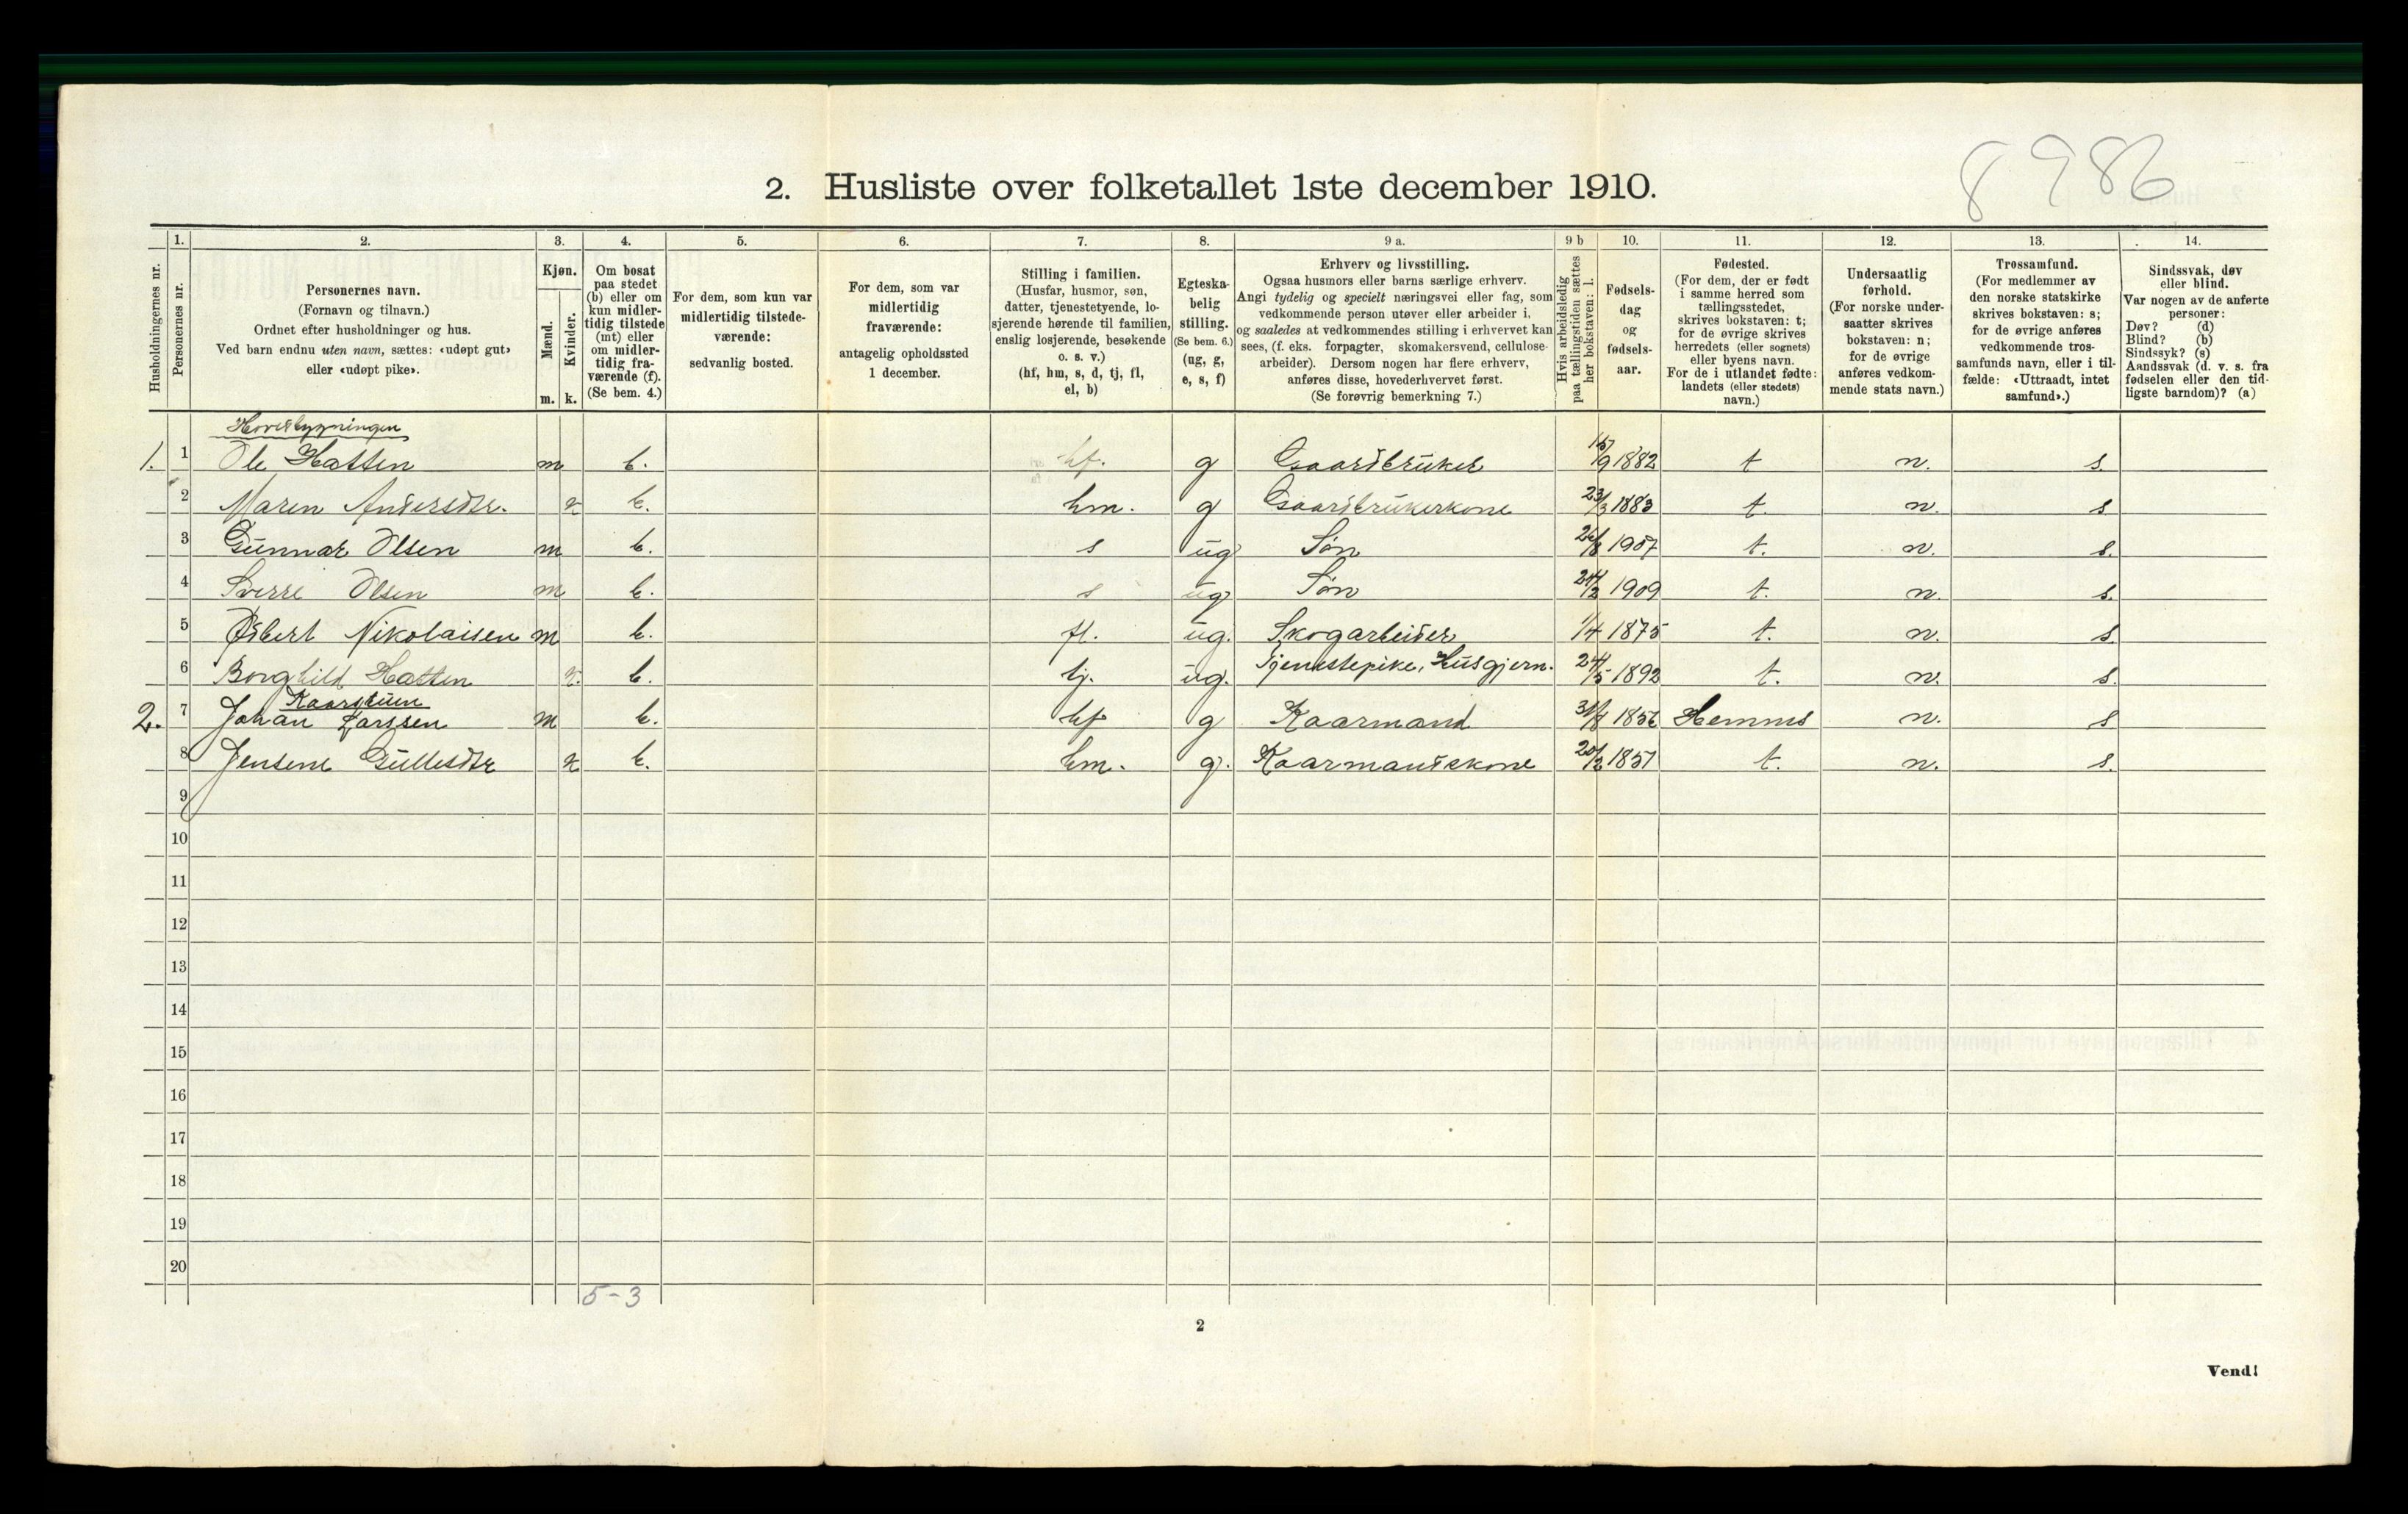 8986
2. Husliste over folketallet 1ste december 1910.
Husholdningernes nr.
1. Personernes nr.
2. Personernes navn.
(Fornavn og tilnavn.)
Ordnet efter husholdninger og hus.
Ved barn endnu uten navn, sættes: «udøpt gut»
eller «udøpt pike».
3. Kjøn.
Mænd. m.
Kvinder. k.
4. Om bosat
paa stedet
(b) eller om
kun midler-
tidig tilstede
(mt) eller
om midler-
tidig fra-
værende (f).
(Se bem. 4.)
5. For dem, som kun var
midlertidig tilstede-
værende:
sedvanlig bosted.
6. For dem, som var
midlertidig
fraværende:
antagelig opholdssted
1 december.
7. Stilling i familien.
(Husfar, husmor, søn,
datter, tjenestetyende, lo-
sjerende hørende til familien,
enslig losjerende, besøkende
o. s. v.)
(hf, hm, s, d, tj, fl,
el, b)
8. Egteska-
belig
stilling.
(Se bem. 6.)
(ug, g,
e, s, f)
9 a. Erhverv og livsstilling.
Ogsaa husmors eller barns særlige erhverv.
Angi tydelig og specielt næringsvei eller fag, som
vedkommende person utøver eller arbeider i,
og saaledes at vedkommendes stilling i erhvervet kan
sees, (f. eks. forpagter, skomakersvend, cellulose-
arbeider). Dersom nogen har flere erhverv,
anføres disse, hovederhvervet først.
(Se forøvrig bemerkning 7.)
9 b Hvis arbeidsledig
paa tællingstiden sættes
her bokstaven: l.
10. Fødsels-
dag
og
fødsels-
aar.
11. Fødested.
(For dem, der er født
i samme herred som
tællingsstedet,
skrives bokstaven: t;
for de øvrige skrives
herredets (eller sognets)
eller byens navn.
For de i utlandet fødte:
landets (eller stedets)
navn.)
12. Undersaatlig
forhold.
(For norske under-
saatter skrives
bokstaven: n;
for de øvrige
anføres vedkom-
mende stats navn.)
13. Trossamfund.
(For medlemmer av
den norske statskirke
skrives bokstaven: s;
for de øvrige anføres
vedkommende tros-
samfunds navn, eller i til-
fælde: «Uttraadt, intet
samfund».)
14. Sindssvak, døv
eller blind.
Var nogen av de anførte
personer:
Døv? (d)
Blind? (b)
Sindssyk? (s)
Aandssvak (d. v. s. fra
fødselen eller den tid-
ligste barndom)? (a)
Hovedbygningen
1. 1 Ole Hatten m b. hf. g Gaardbruker 15/9 1882 t n. s.
2 Maren Andersdtr. k b. hm. g Gaardbrukerkone 23/3 1883 t. n. s
3 Gunnar Olsen m b. s ug Søn 26/8 1907 t. n. s.
4 Sverre Olsen m b. s ug Søn 24/2 1909 t. n. s.
5 Edbert Nikolaisen m b. fl. ug. Skogarbeider 1/4 1875 t. n. s.
6 Borghild Hatten k. b. tj. ug. Tjenestepike, Husgjern. 24/5 1892 t. n. s.
Kaarstuen
2. 7 Johan Larssen m b. hf g Kaarmand 31/8 1856 Hemnes n. s
8 Jensene Gullesdtr k b. hm. g. Kaarmandskone 20/2 1851 t. n. s.
9
10
11
12
13
14
15
16
17
18
19
20
5-3
2
Vend!